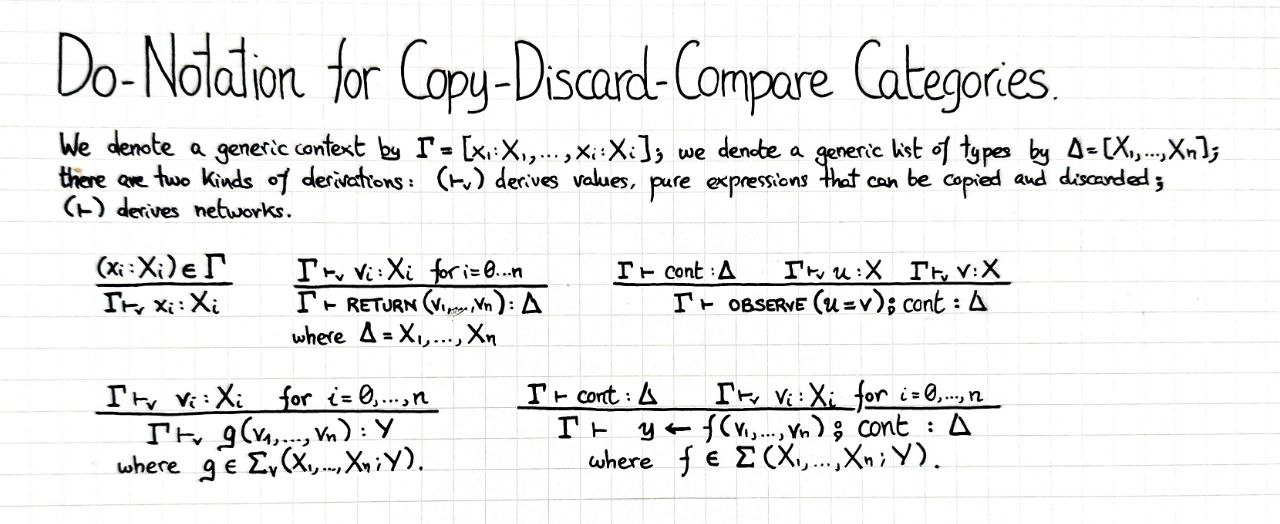 Do-Notation for Copy-Discard-Compare Categories.
We denote a generic context by Γ = [x₁:X₁,...,xᵢ:Xᵢ]; we denote a generic list of types by Δ=[X₁,...,Xₙ];
there are two kinds of derivations: (⊢ᵥ) derives values, pure expressions that can be copied and discarded;
(⊢) derives networks.
(xᵢ:Xᵢ)∈Γ
Γ⊢ᵥ xᵢ:Xᵢ
Γ⊢ᵥ vᵢ:Xᵢ for i=0...n
Γ ⊢ RETURN (v₁,...,vₙ): Δ
where Δ = X₁,...,Xₙ
Γ ⊢ cont : Δ Γ⊢ᵥ u:X Γ⊢ᵥ v:X
Γ ⊢ OBSERVE (u=v); cont : Δ
Γ⊢ᵥ vᵢ:Xᵢ for i=0,...,n
Γ⊢ᵥ g(v₁,...,vₙ) : Y
where g ∈ Σᵥ(X₁,...,Xₙ;Y).
Γ ⊢ cont : Δ Γ⊢ᵥ vᵢ:Xᵢ for i=0,...,n
Γ ⊢ y ← f(v₁,...,vₙ) ; cont : Δ
where f ∈ Σ(X₁,...,Xₙ;Y).